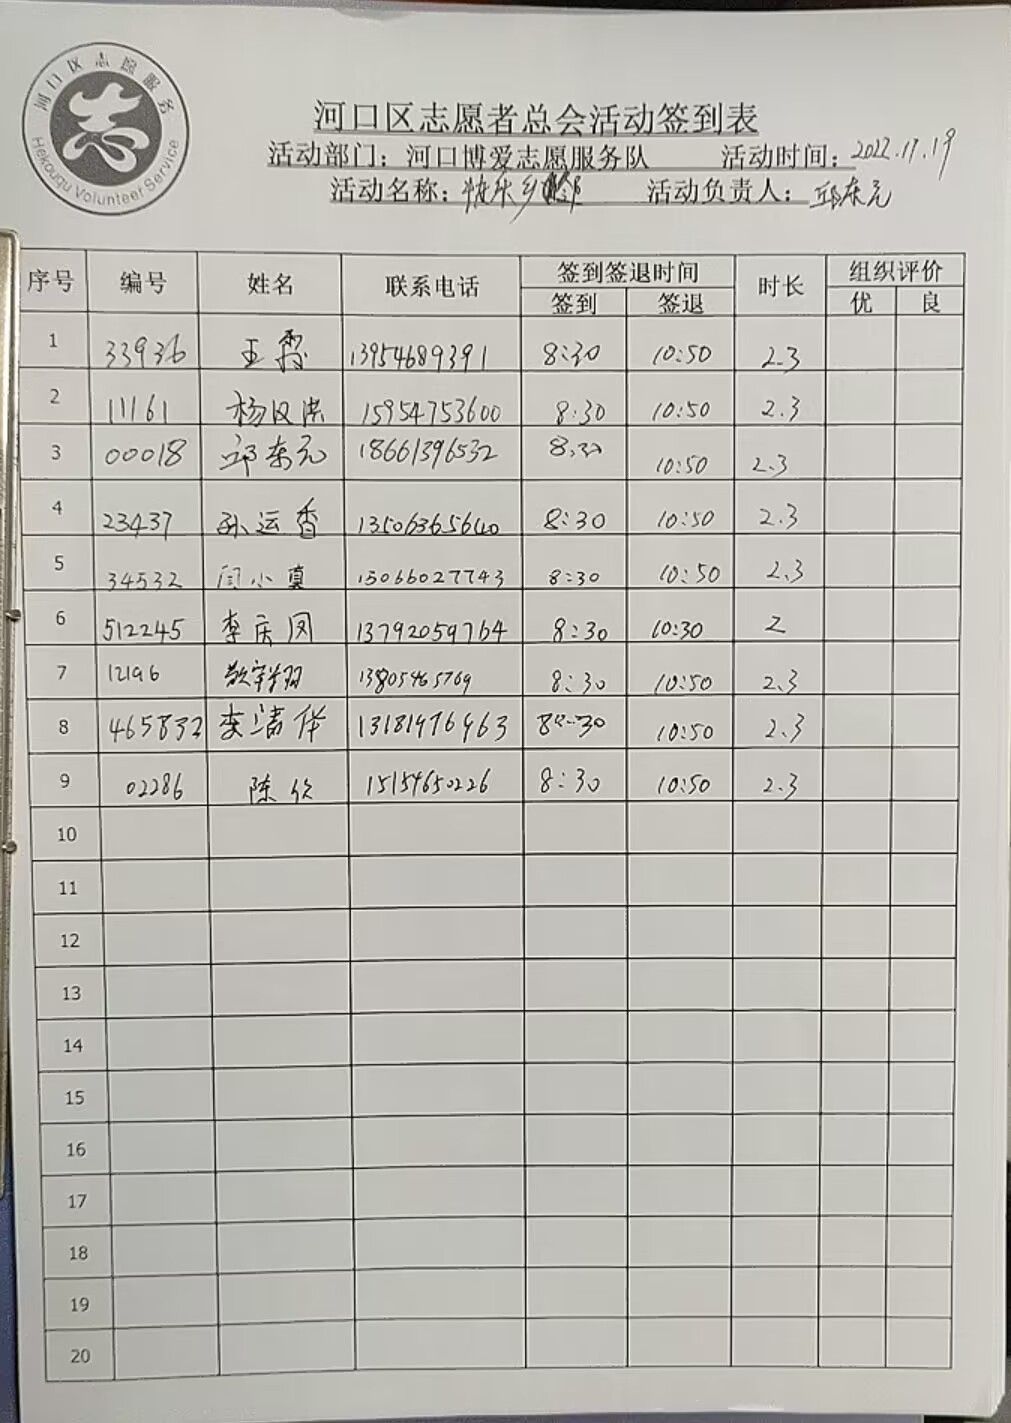 河口区志愿服务
Hekouqu Volunteer Service
河口区志愿者总会活动签到表
活动部门：河口博爱志愿服务队 活动时间：2022.11.19
活动名称：快乐乡邻 活动负责人：邱东元
序号 编号 姓名 联系电话 签到签退时间 时长 组织评价
签到 签退 优 良
1 33936 王霞 13954689391 8:30 10:50 2.3
2 11161 杨汉洪 15954753600 8:30 10:50 2.3
3 00018 邱东元 18661396532 8:30 10:50 2.3
4 23437 孙运香 13506365640 8:30 10:50 2.3
5 34532 闫小真 15066027743 8:30 10:50 2.3
6 512245 李庆凤 13792059764 8:30 10:30 2
7 12196 13805465769 8:30 10:50 2.3
8 465832 李清华 13181976963 8:30 10:50 2.3
9 02286 陈欣 15154650226 8:30 10:50 2.3
10
11
12
13
14
15
16
17
18
19
20